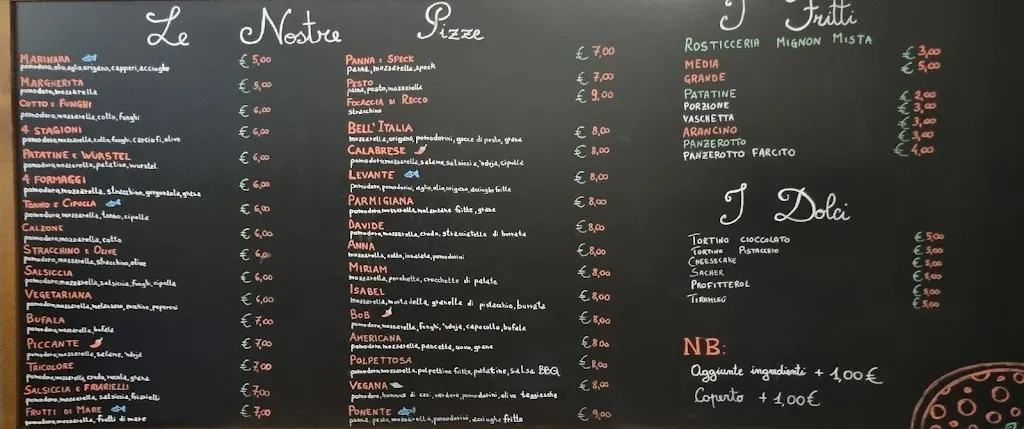 Le Nostre Pizze
MARINARA € 5,00
pomodoro,olio,aglio,origano,capperi,acciughe
MARGHERITA € 5,00
pomodoro,mozzarella
COTTO e FUNGHI € 6,00
pomodoro,mozzarella,cotto,funghi
4 STAGIONI € 6,00
pomodoro,mozzarella,cotto,funghi,carciofi,olive
PATATINE e WURSTEL € 6,00
pomodoro,mozzarella,patatine,wurstel
4 FORMAGGI € 6,00
pomodoro,mozzarella,stracchino,gorgonzola,grana
TONNO e CIPOLLA € 6,00
pomodoro,mozzarella,tonno,cipolla
CALZONE € 6,00
pomodoro,mozzarella,cotto
STRACCHINO e OLIVE € 6,00
pomodoro,mozzarella,stracchino,olive
SALSICCIA € 6,00
pomodoro,mozzarella,salsiccia,funghi,cipolla
VEGETARIANA € 6,00
pomodoro,mozzarella,melanzane,zucchine,peperoni
BUFALA € 7,00
pomodoro,mozzarella,bufala
PICCANTE € 7,00
pomodoro,mozzarella,salame,'nduja
TRICOLORE € 7,00
pomodoro,mozzarella,crudo,rucola,grana
SALSICCIA e FRIARIELLI € 7,00
pomodoro,mozzarella,salsiccia,friarielli
FRUTTI DI MARE € 7,00
pomodoro,mozzarella,frutti di mare
PANNA e SPECK € 7,00
panna,mozzarella,speck
PESTO € 7,00
panna,pesto,mozzarella
FOCACCIA DI RECCO € 9,00
stracchino
BELL'ITALIA € 8,00
mozzarella,origano,pomodorini,gocce di pesto,grana
CALABRESE € 8,00
pomodoro,mozzarella,salame,salsiccia,'nduja,cipolla
LEVANTE € 8,00
pomodoro,pomodorini,aglio,olio,origano,acciughe fritte
PARMIGIANA € 8,00
pomodoro,mozzarella,melanzane fritte,grana
DAVIDE € 8,00
pomodoro,mozzarella,crudo,stracciatella di burrata
ANNA € 8,00
mozzarella,cotto,insalata,pomodorini
MIRIAM € 8,00
mozzarella,porchetta,crocchette di patate
ISABEL € 8,00
mozzarella,mortadella,granella di pistacchio,burrata
BOB € 8,00
pomodoro,mozzarella,funghi,'nduja,capocollo,bufala
AMERICANA € 8,00
pomodoro,mozzarella,pancetta,uovo,grana
POLPETTOSA € 8,00
pomodoro,mozzarella,polpettine fritte,patatine,salsa BBQ
VEGANA € 8,00
pomodoro,hummus di ceci,verdure,pomodorini,olive taggiasche
PONENTE € 9,00
panna,pesto,mozzarella,pomodorini,acciughe fritte
I Fritti
ROSTICCERIA MIGNON MISTA
MEDIA € 3,00
GRANDE € 5,00
PATATINE
PORZIONE € 2,00
VASCHETTA € 3,00
ARANCINO € 3,00
PANZEROTTO € 3,00
PANZEROTTO FARCITO € 4,00
I Dolci
TORTINO CIOCCOLATO € 5,00
TORTINO PISTACCHIO € 5,00
CHEESECAKE € 5,00
SACHER € 5,00
PROFITTEROL € 5,00
TIRAMISÙ € 5,00
NB:
Aggiunte ingredienti + 1,00 €
Coperto + 1,00 €